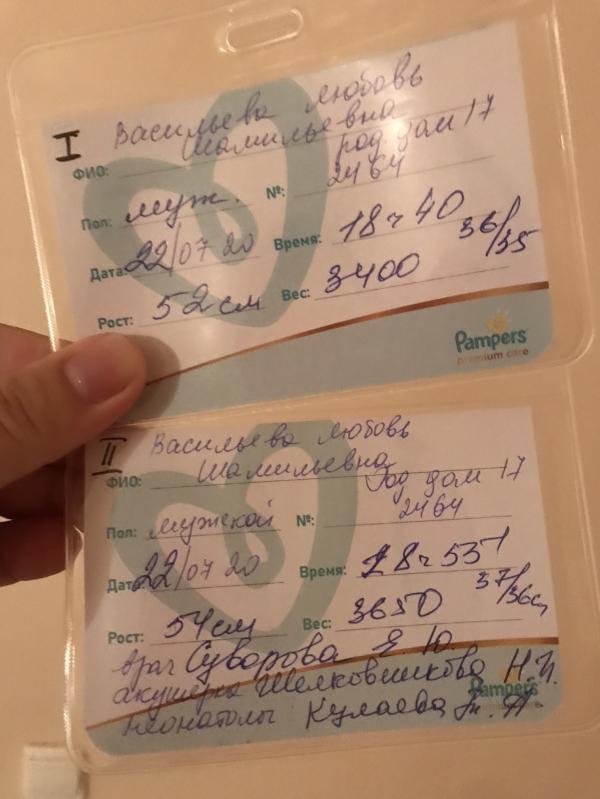 I
Васильева Любовь
ФИО: Шамильевна
род дом 17
Пол: муж. №: 2464
Дата: 22/07 20 Время: 18ч 40
36/35
Рост: 52 см Вес: 3400
Pampers
premium care
II
Васильева Любовь
ФИО: Шамильевна
Род дом 17
Пол: мужской №: 2464
Дата: 22/07 20 Время: 18ч 55
37/36см
Рост: 54см Вес: 3650
врач Суворова Я Ю.
акушерка Шелковникова Н.И.
неонатолог Кулаева А.
Pampers